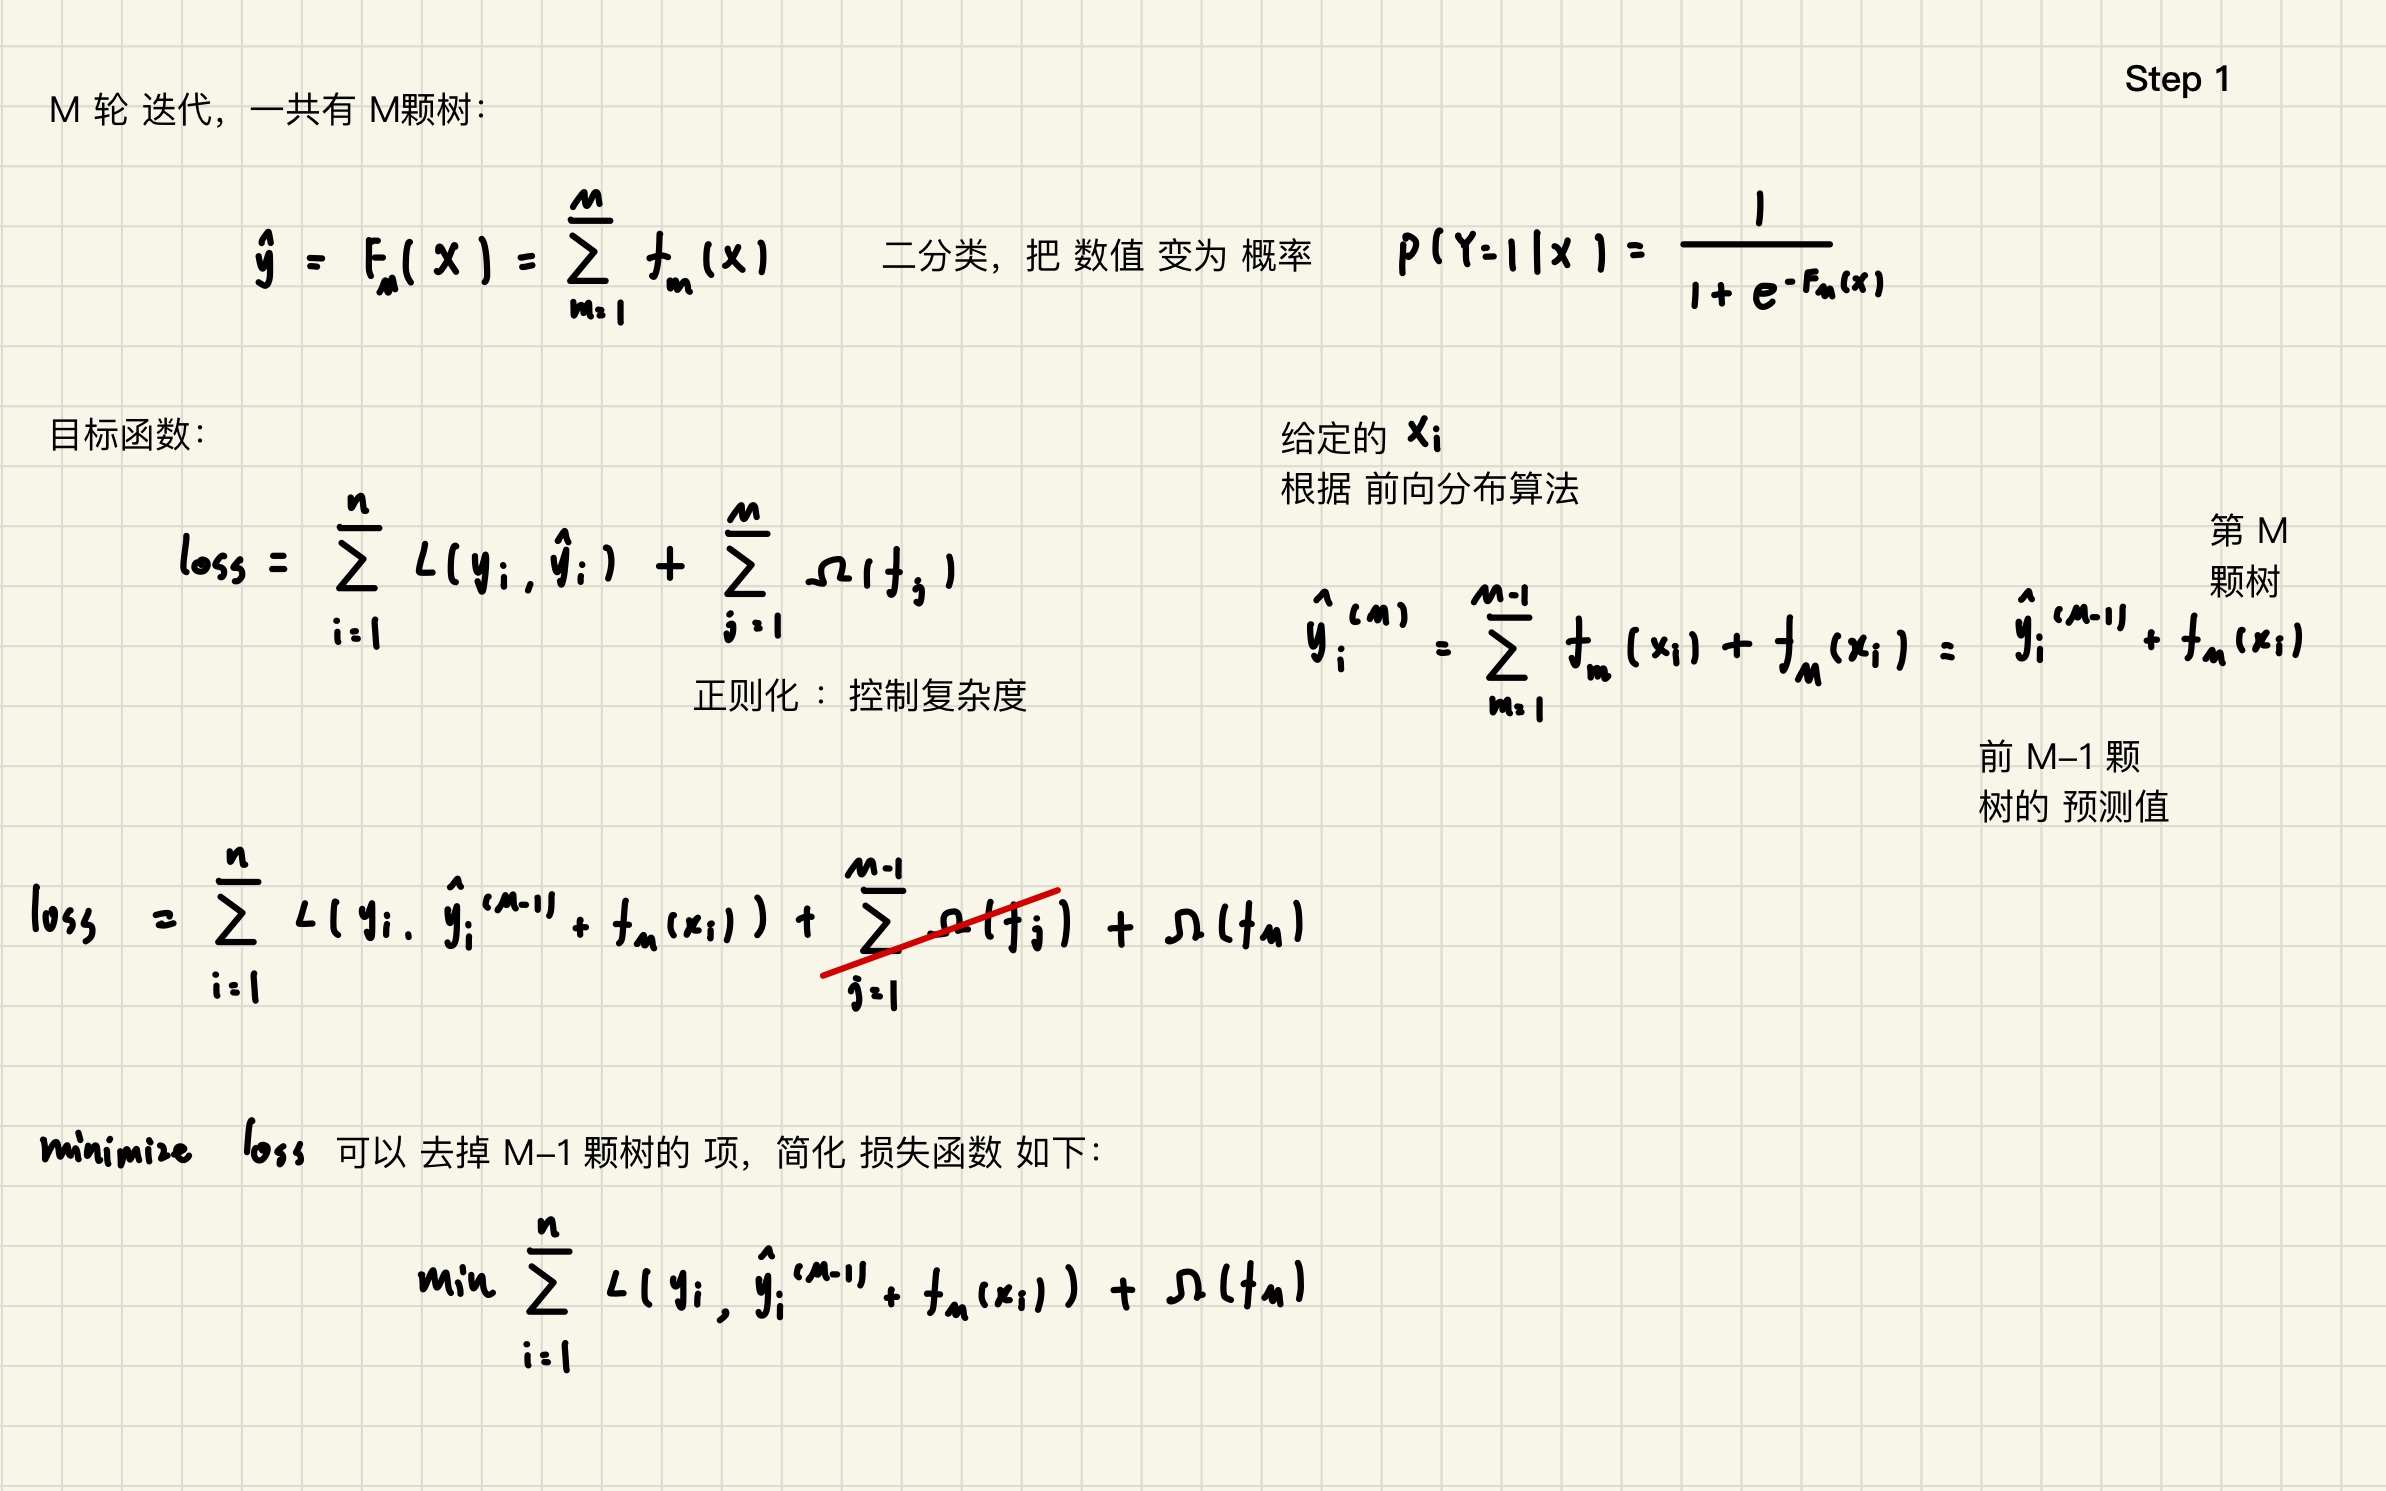 Step 1
M 轮 迭代，一共有 M颗树：
ŷ = F_M(X) = \sum_{m=1}^{M} f_m(x)
二分类，把 数值 变为 概率
P(Y=1|X) = \frac{1}{1+e^{-F_M(x)}}
目标函数：
loss = \sum_{i=1}^{n} L(y_i, ŷ_i) + \sum_{j=1}^{M} Ω(f_j)
正则化 ：控制复杂度
给定的 x_i
根据 前向分布算法
ŷ_i^{(M)} = \sum_{m=1}^{M-1} f_m(x_i) + f_M(x_i) = ŷ_i^{(M-1)} + f_M(x_i)
第 M
颗树
前 M-1 颗
树的 预测值
loss = \sum_{i=1}^{n} L(y_i, ŷ_i^{(M-1)} + f_M(x_i)) + \sum_{j=1}^{M-1} Ω(f_j) + Ω(f_M)
minimize loss 可以 去掉 M-1 颗树的 项，简化 损失函数 如下：
min \sum_{i=1}^{n} L(y_i, ŷ_i^{(M-1)} + f_M(x_i)) + Ω(f_M)